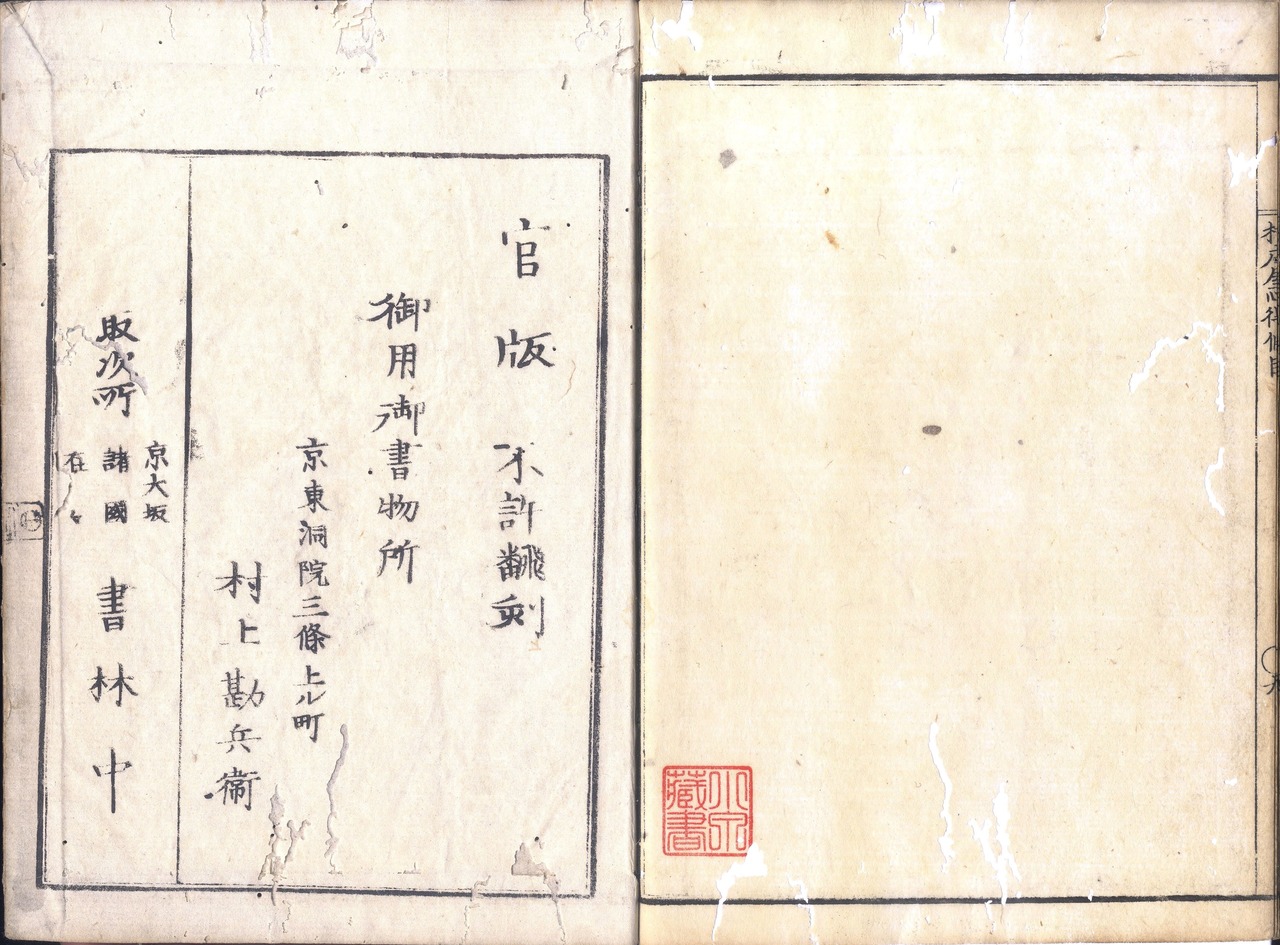 村庄屋心得條目
九
藏書
官版 不許翻刻
御用御書物所
京東洞院三條上ル町
村上勘兵衞
取次所
京大坂
諸國
在々
書林中